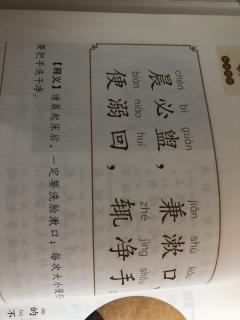 chén bì guàn jiān shù kǒu
晨必盥，兼漱口
biàn niào huí zhé jìng shǒu
便溺回，辄净手
【释义】清晨起床后，一定要洗脸漱口；每次大小便
要把手洗干净。
de
的
不